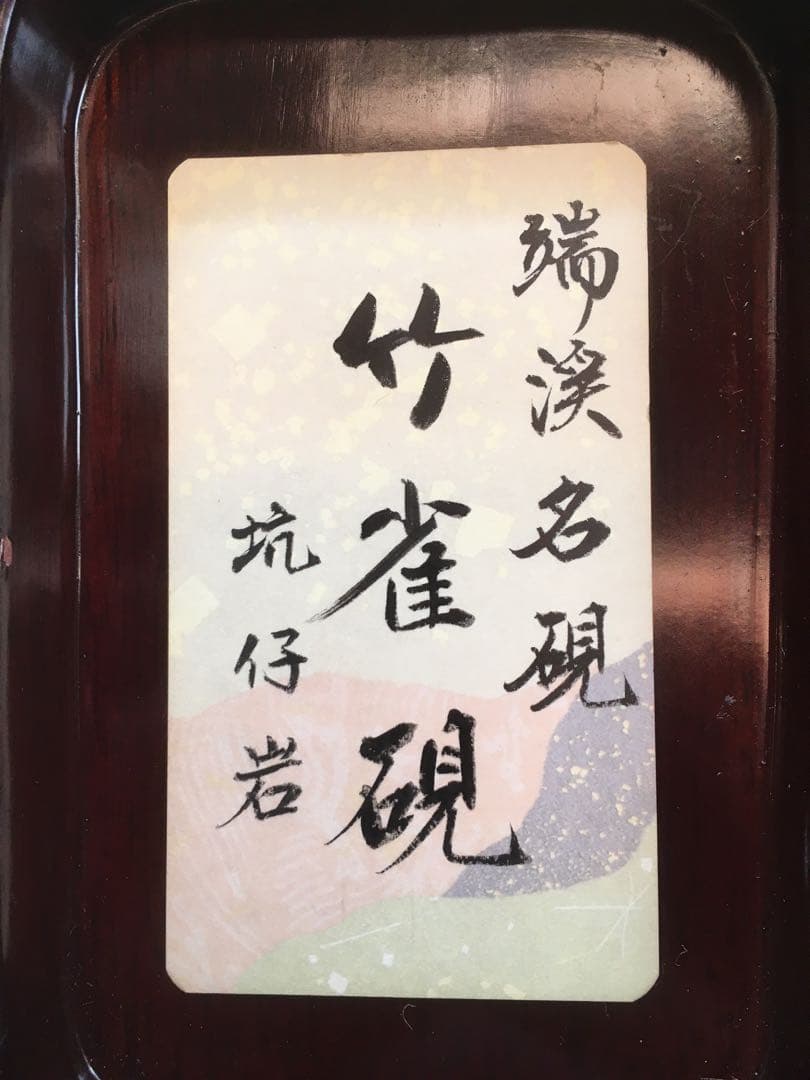 端溪名硯
竹雀硯
坑仔岩